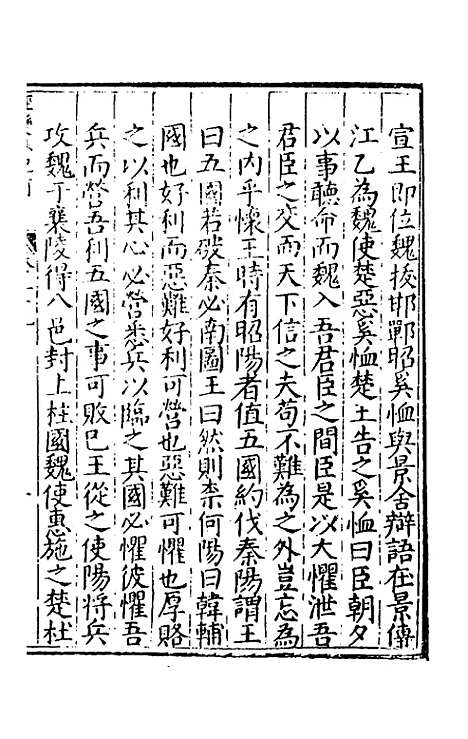 宣王即位魏拔邯鄲昭奚恤與景舍辯語在景傳
江乙為魏使楚惡奚恤楚王告之奚恤曰臣朝夕
以事聽命而魏入吾君臣之間臣是以大懼泄吾
君臣之交而天下信之夫苟不難為之外豈忘為
之内乎懷王時有昭陽者值五國約伐秦陽謂王
曰五國若破秦必南圖王曰然則柰何陽曰韓輔
國也好利而惡難好利可營也惡難可懼也厚賂
之以利其心必營悉兵以臨之其國必懼彼懼吾
兵而營吾利五國之事可敗已王從之使陽將兵
攻魏于襄陵得八邑封上柱國魏使惠施之楚杜